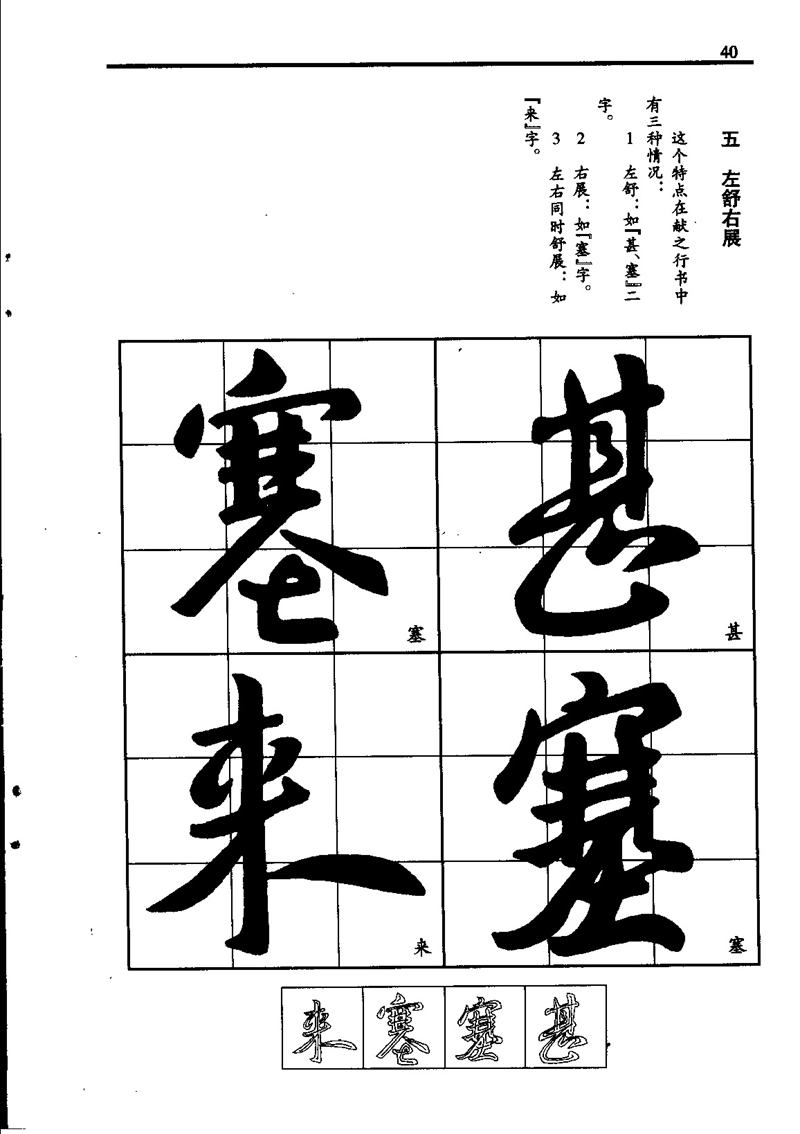 40
五　左舒右展
这个特点在献之行书中
有三种情况：
1　左舒：如『甚、塞』二
字。
2　右展：如『塞』字。
3　左右同时舒展：如
『来』字。
甚
甚
塞
塞
塞
塞
来
来
来塞塞甚